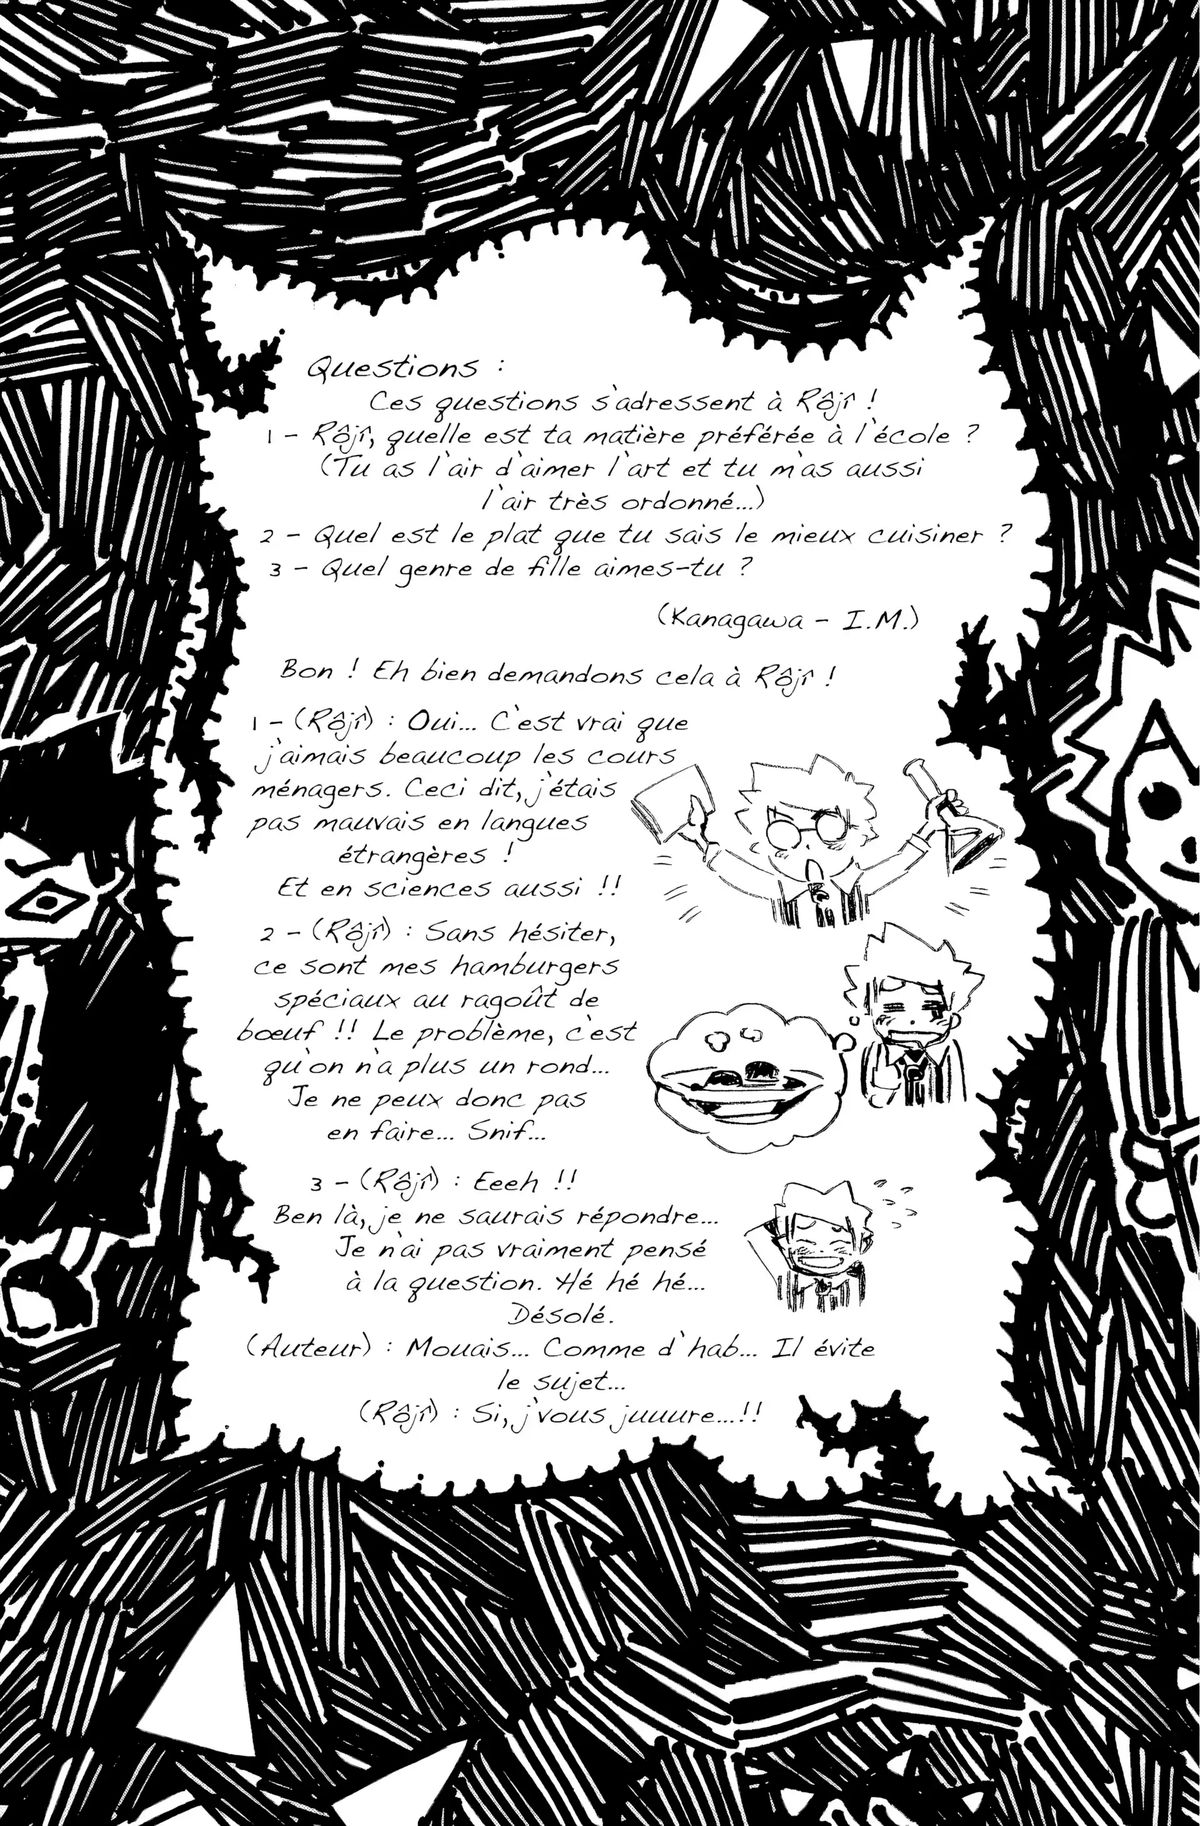 Questions :
Ces questions s'adressent à Rôjî !
1 - Rôjî, quelle est ta matière préférée à l'école ?
(Tu as l'air d'aimer l'art et tu m'as aussi
l'air très ordonné...)
2 - Quel est le plat que tu sais le mieux cuisiner ?
3 - Quel genre de fille aimes-tu ?
(Kanagawa - I.M.)
Bon ! Eh bien demandons cela à Rôjî !
1 - (Rôjî) : Oui... C'est vrai que
j'aimais beaucoup les cours
ménagers. Ceci dit, j'étais
pas mauvais en langues
étrangères !
Et en sciences aussi !!
2 - (Rôjî) : Sans hésiter,
ce sont mes hamburgers
spéciaux au ragoût de
bœuf !! Le problème, c'est
qu'on n'a plus un rond...
Je ne peux donc pas
en faire... Snif...
3 - (Rôjî) : Eeeh !!
Ben là, je ne saurais répondre...
Je n'ai pas vraiment pensé
à la question. Hé hé hé...
Désolé.
(Auteur) : Mouais... Comme d'hab... Il évite
le sujet...
(Rôjî) : Si, j'vous juuure...!!